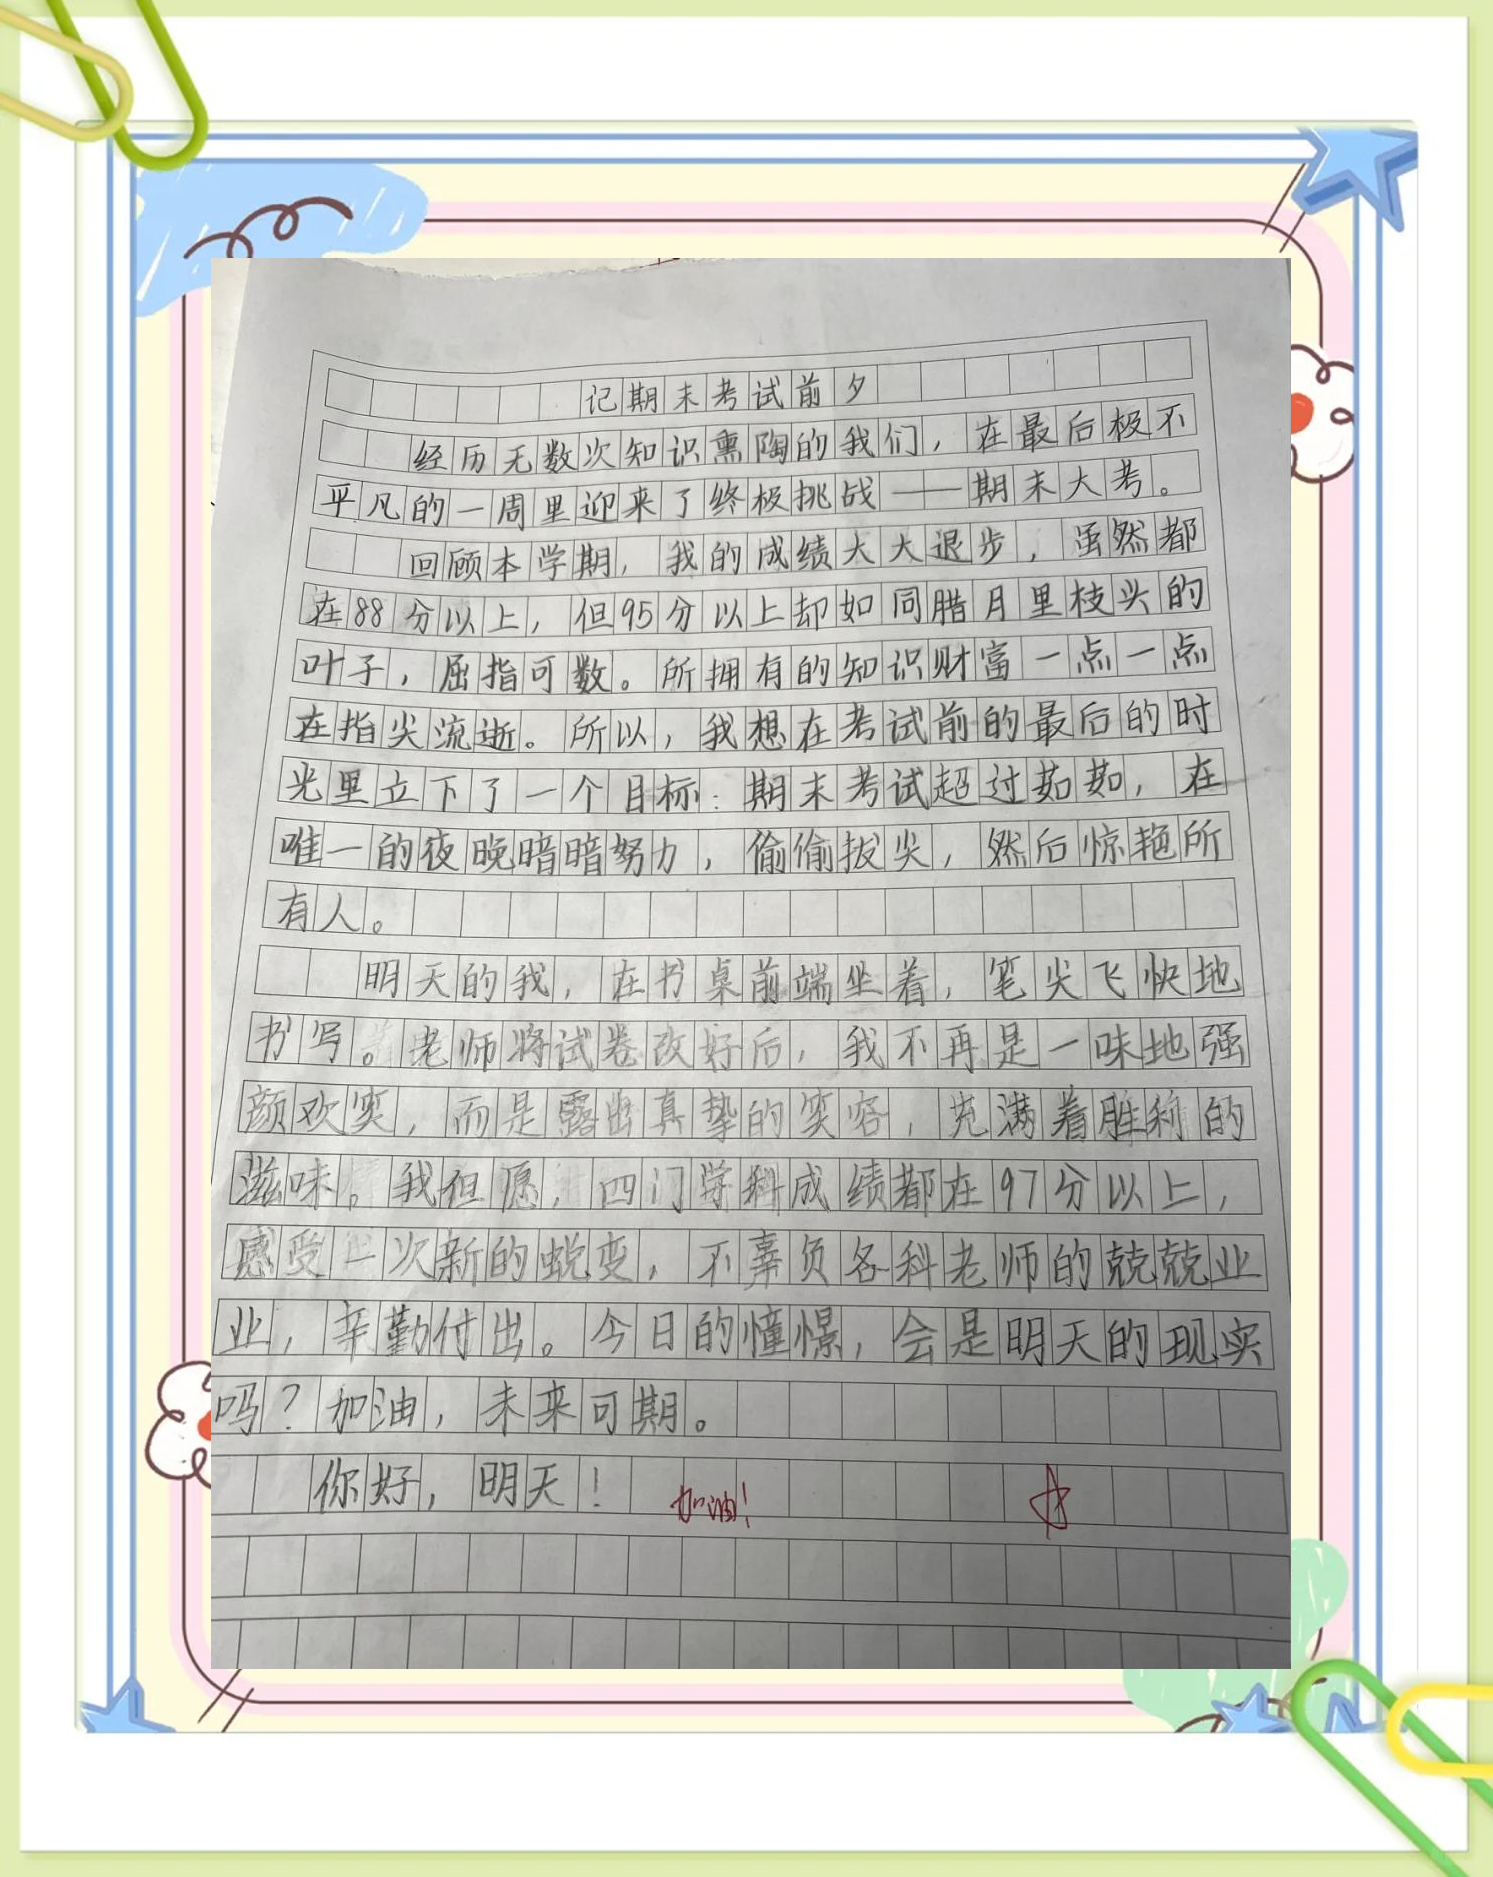 记期末考试前夕
经历无数次知识熏陶的我们，在最后极不
平凡的一周里迎来了终极挑战——期末大考。
回顾本学期，我的成绩大大退步，虽然都
在88分以上，但95分以上却如同腊月里枝头的
叶子，屈指可数。所拥有的知识财富一点一点
在指尖流逝。所以，我想在考试前的最后的时
光里立下了一个目标：期末考试超过茹茹，在
唯一的夜晚暗暗努力，偷偷拔尖，然后惊艳所
有人。
明天的我，在书桌前端坐着，笔尖飞快地
书写。老师将试卷改好后，我不再是一味地强
颜欢笑，而是露出真挚的笑容，充满着胜利的
滋味。我但愿，四门学科成绩都在97分以上，
感受一次新的蜕变，不辜负各科老师的兢兢业
业，辛勤付出。今日的憧憬，会是明天的现实
吗？加油，未来可期。
你好，明天！
加油！